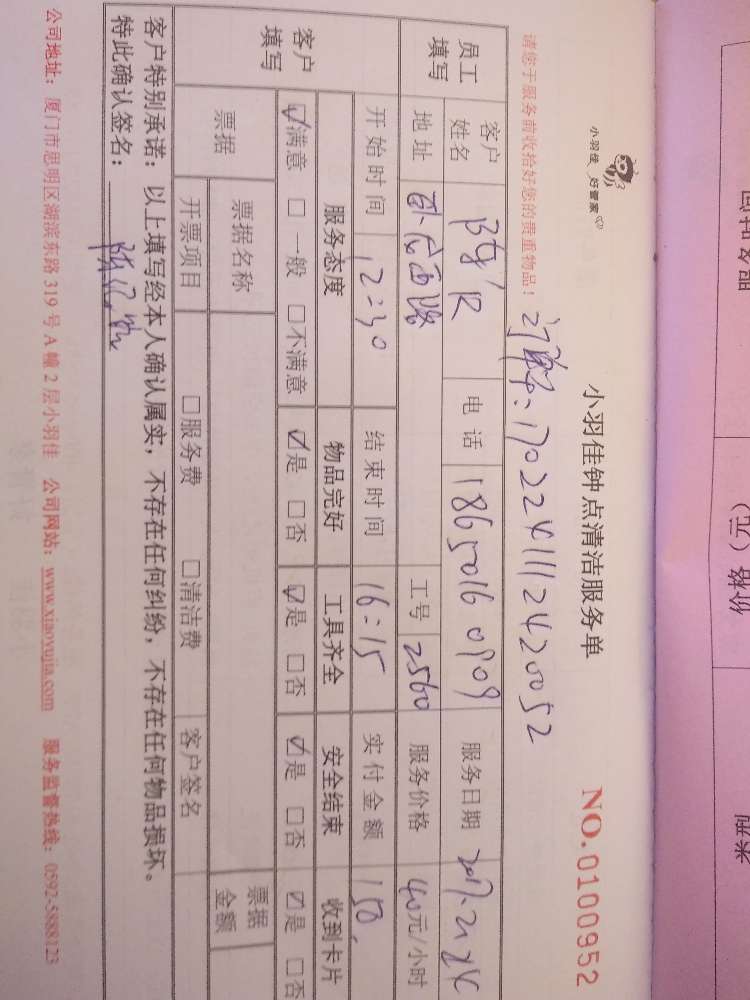 小羽佳 好管家
小羽佳钟点清洁服务单
NO.0100952
请您于服务前收拾好您的贵重物品!
订单号:1702241112420052
员工填写
客户姓名 电话 18650160909 服务日期 2017.2.24
地址 工号 2560 服务价格 40元/小时
客户填写
开始时间 12:30 结束时间 16:15 实付金额 150
服务态度 物品完好 工具齐全 安全结束 收到卡片
☑满意 □一般 □不满意 ☑是 □否 ☑是 □否 ☑是 □否 ☑是 □否
票据 票据名称 票据金额
开票项目 □服务费 □清洁费 客户签名
客户特别承诺:以上填写经本人确认属实,不存在任何纠纷,不存在任何物品损坏。
特此确认签名:
公司地址:厦门市思明区湖滨东路319号A幢2层小羽佳 公司网站:www.xiaoyujia.com 服务监督热线:0592-5888123